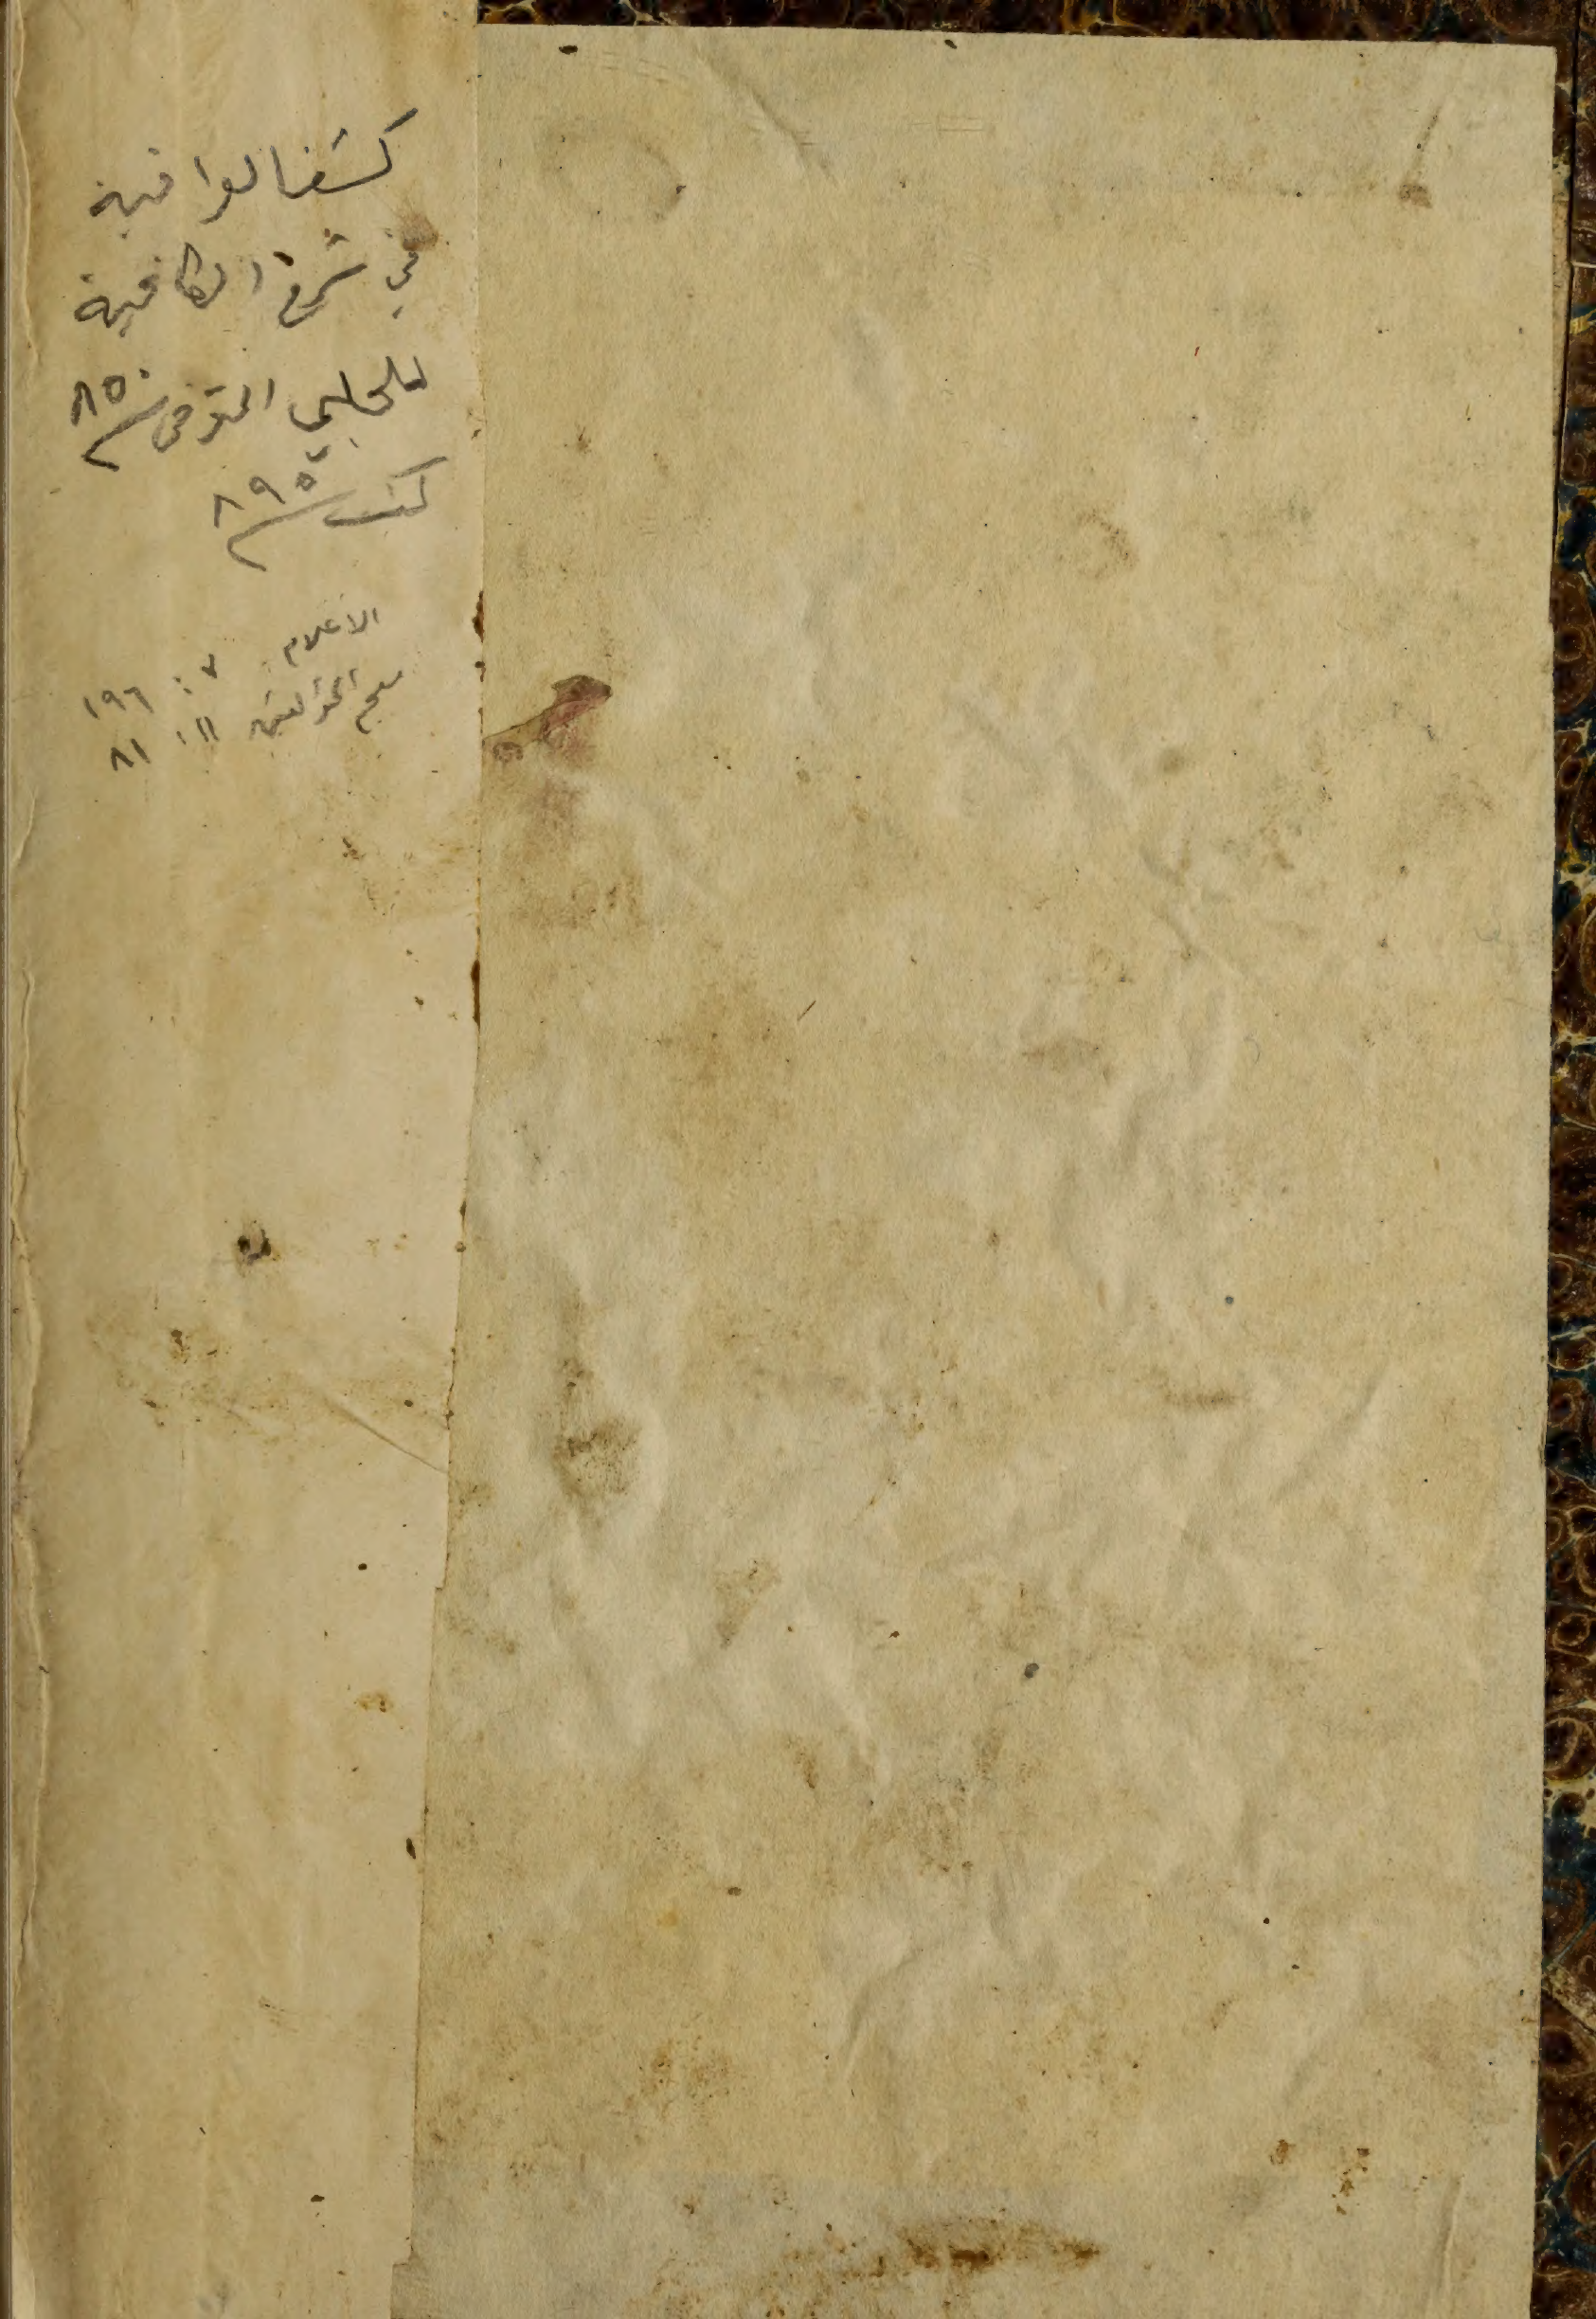 كشف الوافية
في شرح الكافية
للحلبي المتوفى سنة ٨٥٠
كتب سنة ٨٩٥
الاعلام ٧ : ١٩٦
معجم المؤلفين ١١ : ٨١